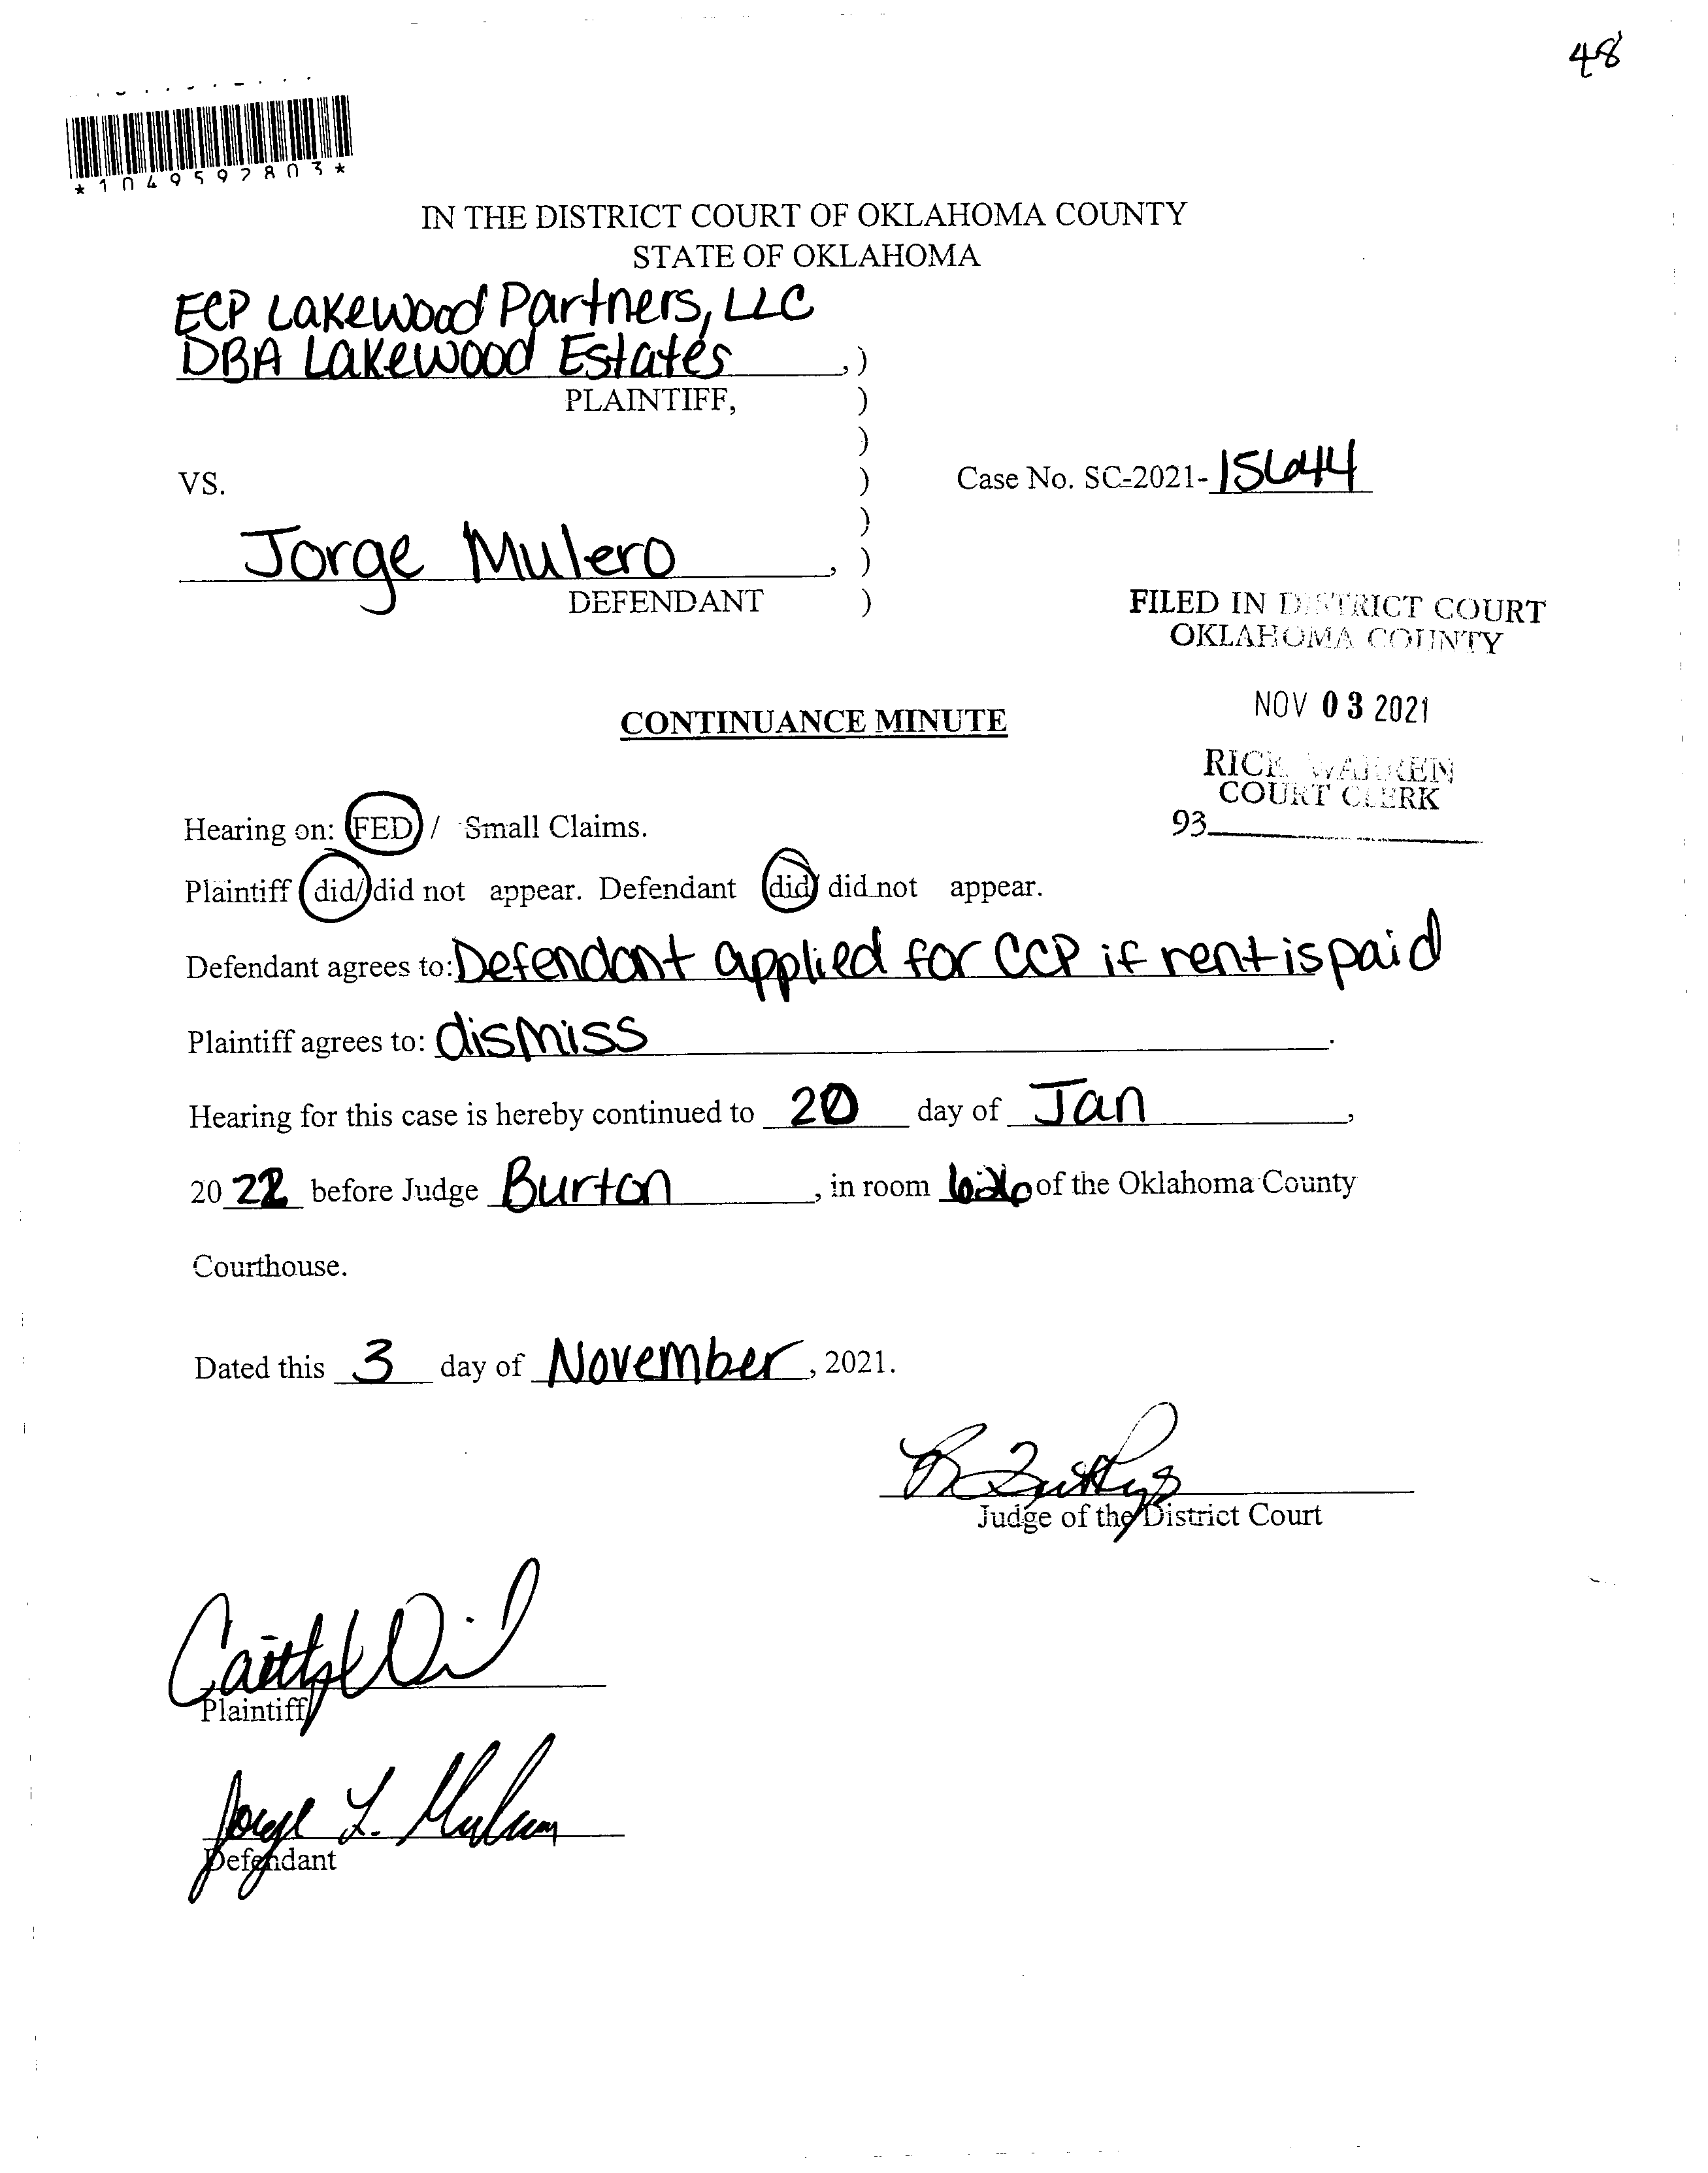 48
*1049592803*
IN THE DISTRICT COURT OF OKLAHOMA COUNTY
STATE OF OKLAHOMA
ECP Lakewood Partners, LLC
DBA Lakewood Estates ,)
PLAINTIFF, )
)
VS. ) Case No. SC-2021-15644
)
Jorge Mulero , )
DEFENDANT )
FILED IN DISTRICT COURT
OKLAHOMA COUNTY
NOV 03 2021
CONTINUANCE MINUTE
RICK WARREN
COURT CLERK
93
Hearing on: FED / Small Claims.
Plaintiff did/did not appear. Defendant did/ did not appear.
Defendant agrees to: Defendant applied for CCP if rent is paid
Plaintiff agrees to: dismiss.
Hearing for this case is hereby continued to 20 day of Jan,
2022 before Judge Burton, in room 626 of the Oklahoma County
Courthouse.
Dated this 3 day of November, 2021.
Judge of the District Court
Plaintiff
Jorge L.
Defendant